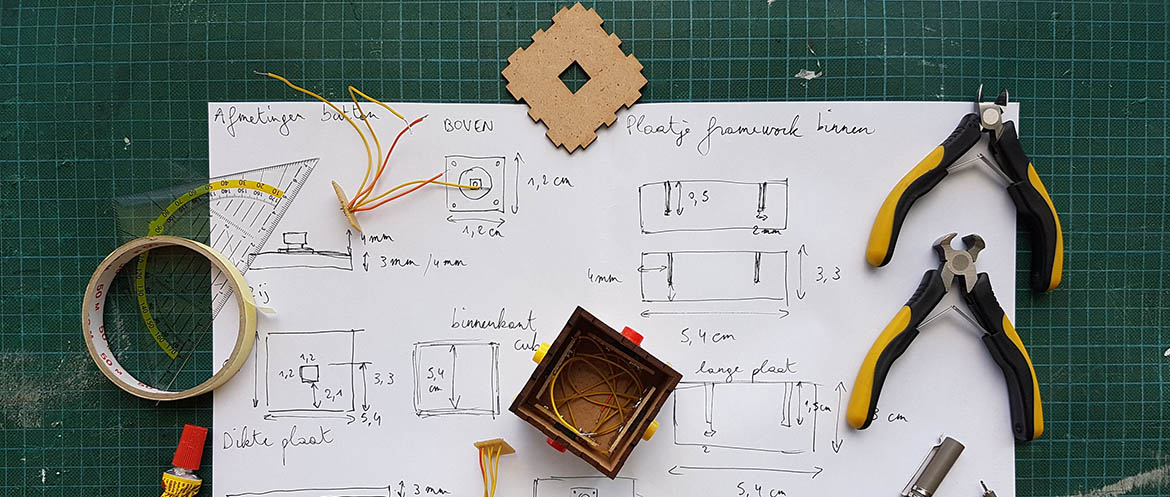 Afmetingen button
BOVEN
Plaatje framework binnen
1,2 cm
1,2 cm
0,5
2 mm
4 mm
3 mm / 4 mm
4mm
3,3
5,4 cm
binnenkant
cub
lange plaat
1,2
1,2
2,1
3,3
5,4
5,4
cm
1,5cm
3 cm
2
5,4 cm
Dikte plaat
3 mm
50 M
50 M